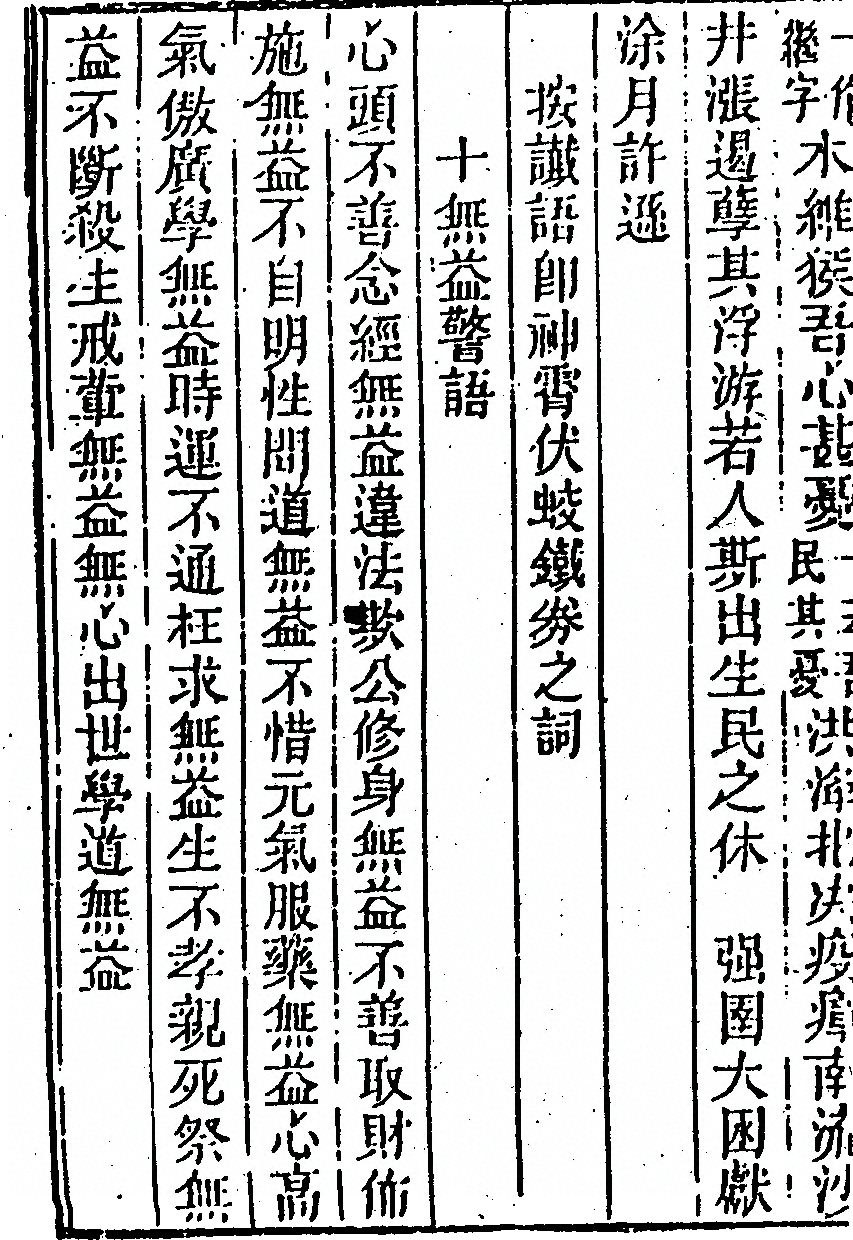 水維發吾心甚憂
民其憂
繼字
井漲遏孽其浮游若人斯出生民之休　强圉大困獻
涂月許遜
按讖語卽神霄伏蛟鐵券之詞
十無益警語
心頭不善念經無益違法欺公修身無益不善取財佈
施無益不自明性問道無益不惜元氣服藥無益心高
氣傲廣學無益時運不通枉求無益生不孝親死祭無
益不斷殺生戒葷無益無心出世學道無益